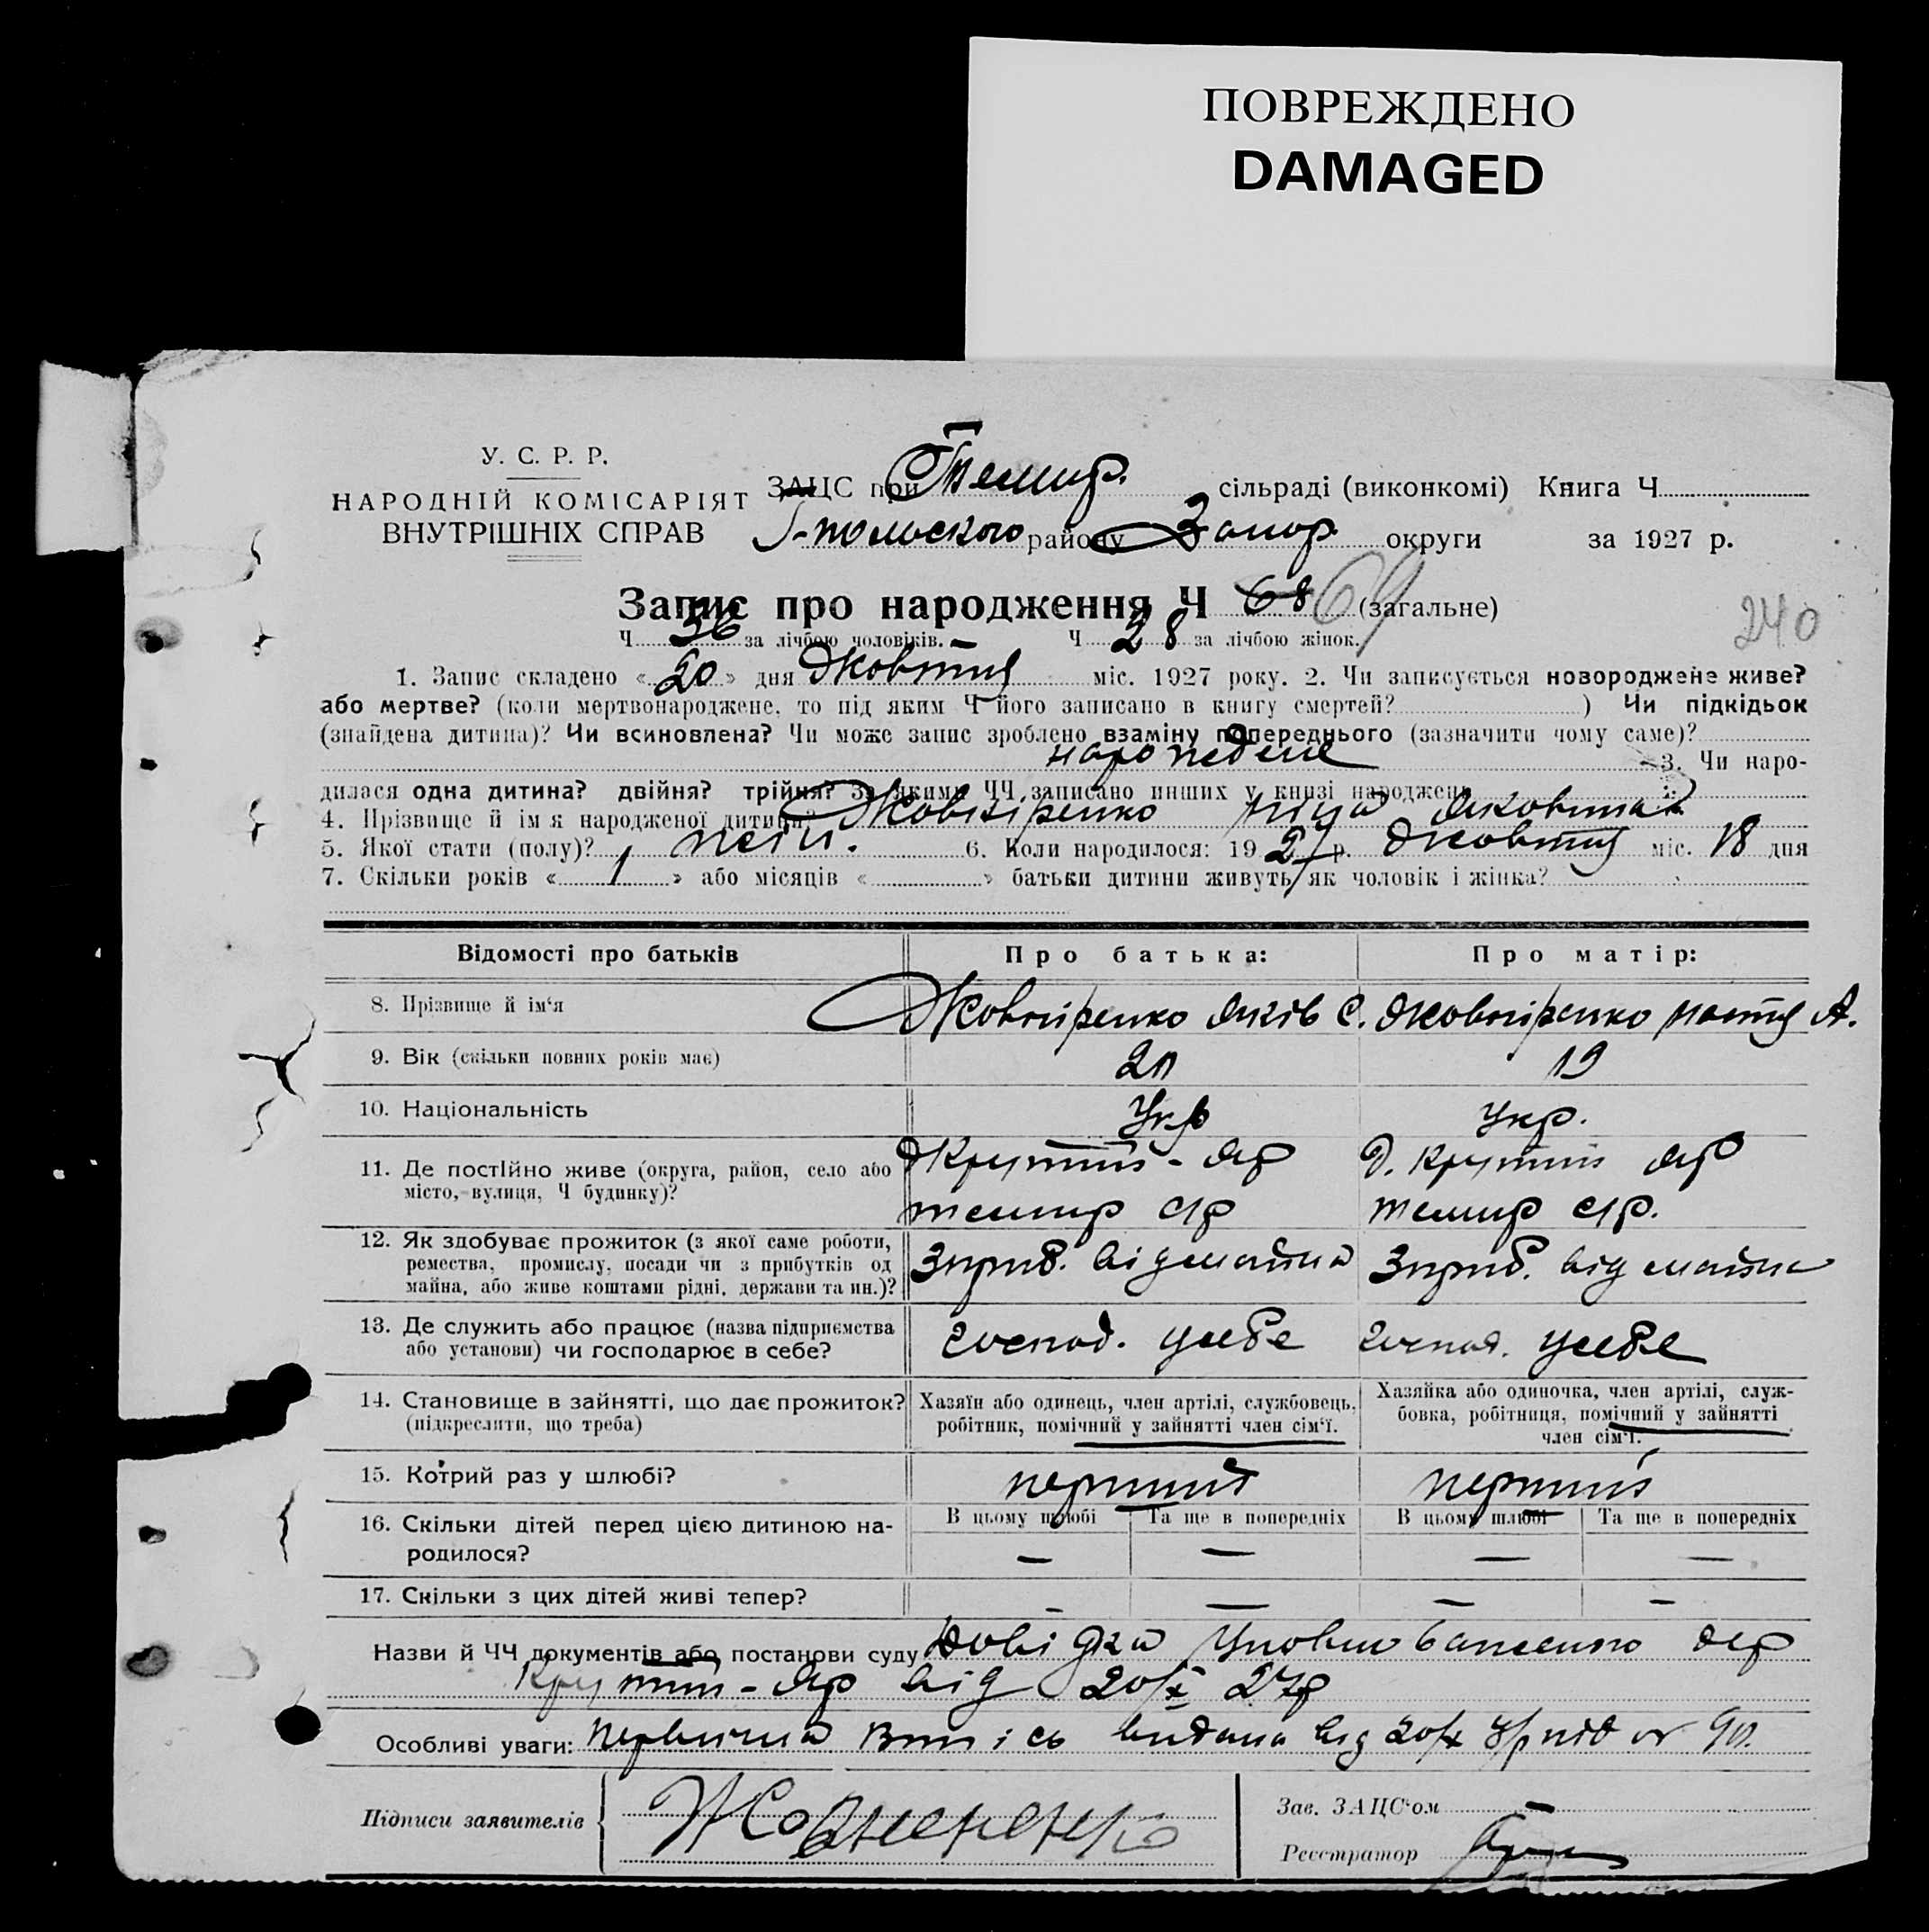 ПОВРЕЖДЕНО
DAMAGED
У. С. Р. Р.
НАРОДНІЙ КОМІСАРІЯТ
ВНУТРІШНІХ СПРАВ
ЗАЦС при Темир. сільраді (виконкомі) Книга Ч
Г-польского району Запор округи за 1927 р.
Запис про народження Ч 68 69 (загальне)
240
Ч 36 за лічбою чоловіків. Ч 28 за лічбою жінок.
1. Запис складено « 20 » дня Жовтня міс. 1927 року. 2. Чи записується новороджене живе?
або мертве? (коли мертвонароджене, то під яким Ч його записано в книгу смертей? ) Чи підкідьок
(знайдена дитина)? Чи всиновлена? Чи може запис зроблено взаміну попереднього (зазначити чому саме)?
3. Чи наро-
дилася одна дитина? двійня? трійня? За якими ЧЧ записано инших у книзі народжень
4. Прізвище й імя народженої дитини? Яковина
5. Якої стати (полу)? жін. 6. Коли народилося: 1927 р. Жовтня міс. 18 дня
7. Скільки років « 1 » або місяців « » батьки дитини живуть як чоловік і жінка?
Відомості про батьків Про батька: Про матір:
8. Прізвище й ім'я Яків С. А.
9. Вік (скільки повних років має) 19
10. Національність Укр Укр.
11. Де постійно живе (округа, район, село або
місто, вулиця, Ч будинку)?
Крутий-Яр Д. Крутий Яр
темир с/р темир с/р.
12. Як здобуває прожиток (з якої саме роботи,
ремества, промислу, посади чи з прибутків од
майна, або живе коштами рідні, держави та ин.)?
Зприб. від майна Зприб. від майна
13. Де служить або працює (назва підприємства
або установи) чи господарює в себе?
господ. усебе господ. усебе
14. Становище в зайнятті, що дає прожиток?
(підкреслити, що треба)
Хазяїн або одинець, член артілі, службовець,
робітник, помічний у зайнятті член сім'ї.
Хазяйка або одиночка, член артілі, служ-
бовка, робітниця, помічний у зайнятті
член сім'ї.
15. Котрий раз у шлюбі? перший перший
16. Скільки дітей перед цією дитиною на-
родилося?
В цьому шлюбі Та ще в попередніх В цьому шлюбі Та ще в попередніх
— — — —
17. Скільки з цих дітей живі тепер? — — — —
Назви й ЧЧ документів або постанови суду Довідка Уповноваженого дер
Крутий-Яр від 20/X 27р
Особливі уваги: Первична видана від 20/X
Підписи заявителів
Зав. ЗАЦС'ом
Реєстратор